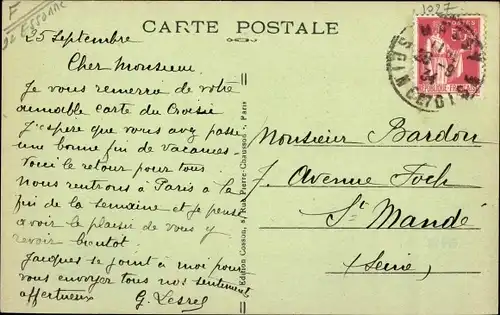 F
92 ESSONNE
1937
CARTE POSTALE
25 Septembre
Cher Monsieur
Je vous remercie de votre
aimable carte du Croisic
J'espère que vous avez passé
une bonne fin de vacances.
Voici le retour pour tous.
Nous rentrons à Paris à la
fin de la semaine et je pense
avoir le plaisir de vous y
revoir bientôt.
Jacques se joint à moi pour
vous envoyer tous nos sentiments
affectueux G.
Edition Cosson, 8, Rue Pierre-Chausson - Paris
MASSY
SEINE ET OISE
POSTES
REPUBLIQUE FRANCAISE
Monsieur Bardon
7, Avenue Foch
St Mandé
(Seine)